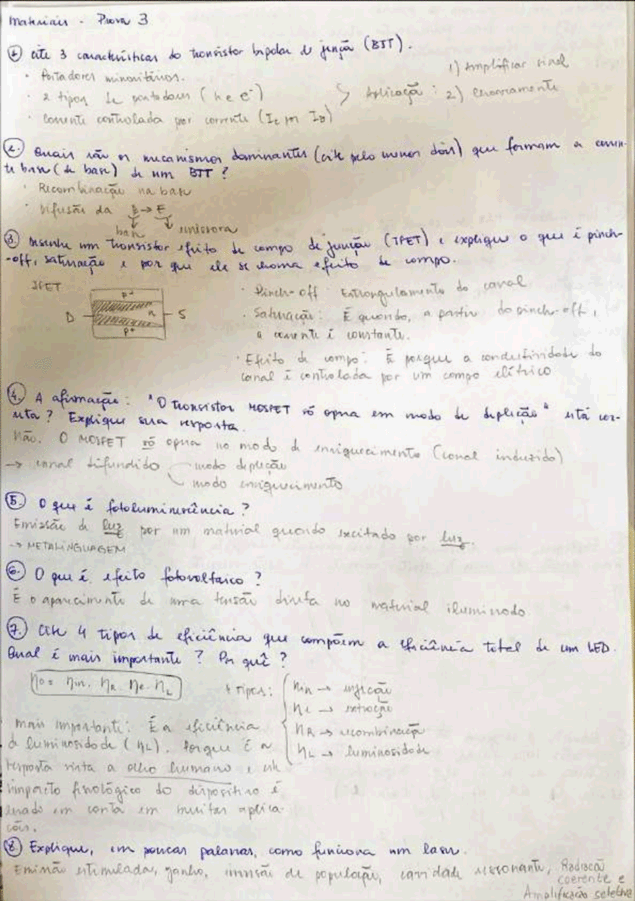 Materiais - Prova 3
1. Cite 3 características do transistor bipolar de junção (BJT).
· Portadores minoritários.
· 2 tipos de portadores (h e e⁻)
· Corrente controlada por corrente (IC por IB)
Aplicação: 1) Amplificar sinal
2) Chaveamento
2. Quais são os mecanismos dominantes (cite pelo menos dois) que formam a corren-
te base (de base) de um BJT?
· Recombinação na base
· Difusão da B → E
base emissora
3. Desenhe um transistor efeito de campo de junção (JFET) e explique o que é pinch-
-off, saturação e por que ele se chama efeito de campo.
JFET
p+
D n S
p+
· Pinch-off Estrangulamento do canal
· Saturação: É quando, a partir do pinch-off,
a corrente é constante.
· Efeito de campo: É porque a condutividade do
canal é controlada por um campo elétrico
4. A afirmação: "O transistor MOSFET só opera em modo de depleção" está cor-
reta? Explique sua resposta.
Não. O MOSFET só opera no modo de enriquecimento (canal induzido)
→ canal difundido modo depleção
modo enriquecimento
5. O que é fotoluminescência?
Emissão de luz por um material quando excitado por luz.
→ METALINGUAGEM
6. O que é efeito fotovoltaico?
É o aparecimento de uma tensão direta no material iluminado.
7. Cite 4 tipos de eficiência que compõem a eficiência total de um LED.
Qual é mais importante? Por quê?
η0 = ηin. ηR. ηe. ηL
4 tipos: ηin → injeção
ηe → extração
ηR → recombinação
ηL → luminosidade
Mais importante: É a eficiência
de luminosidade (ηL). Porque é a
resposta vista a olho humano e
impacto fisiológico do dispositivo é
levado em conta em muitas aplica-
ções.
8. Explique, em poucas palavras, como funciona um laser.
Emissão estimulada, ganho, inversão de população, cavidade ressonante, Radiação
coerente e
Amplificação seletiva